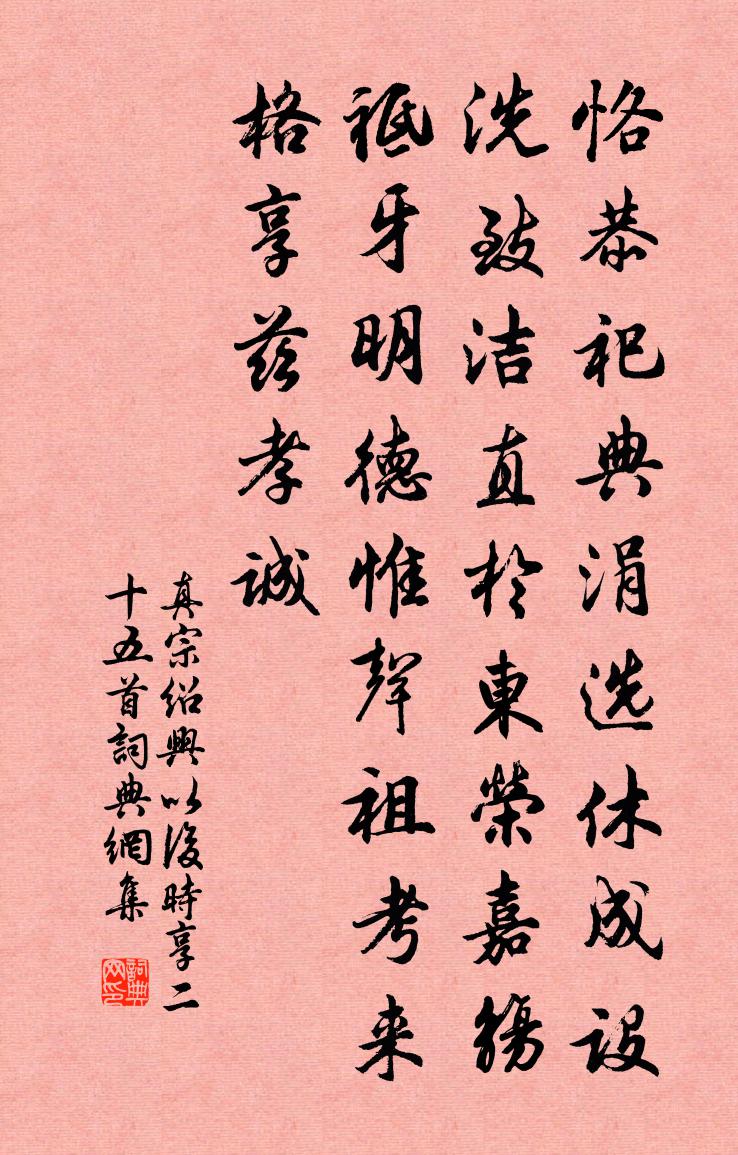 恪恭祀典涓选休成設
洗致洁直於東榮嘉觴
祗牙明德惟聲祖考来
格享兹孝誠
真宗绍興以後時享二
十五首詞典網集
詞典网印